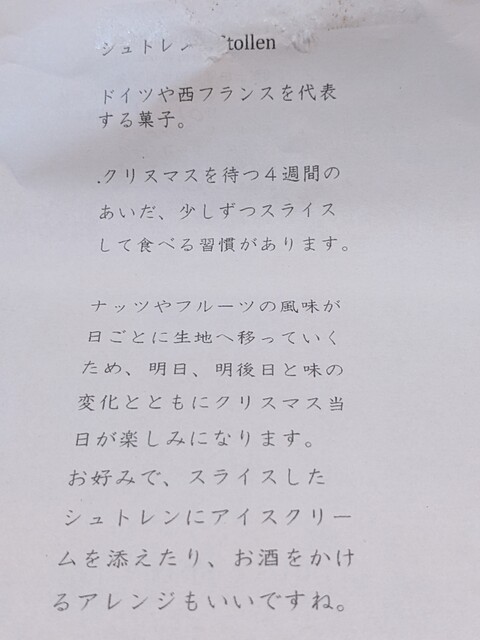 シュトレン Stollen
ドイツや西フランスを代表
する菓子。
.クリスマスを待つ４週間の
あいだ、少しずつスライス
して食べる習慣があります。
ナッツやフルーツの風味が
日ごとに生地へ移っていく
ため、明日、明後日と味の
変化とともにクリスマス当
日が楽しみになります。
お好みで、スライスした
シュトレンにアイスクリー
ムを添えたり、お酒をかけ
るアレンジもいいですね。